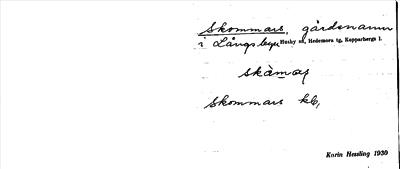 Skommars, gårdsnamn
i Långsbyn Husby sn, Hedemora tg, Kopparbergs l.
skàmaṣ
Skommars kb,
Karin Hessling 1930